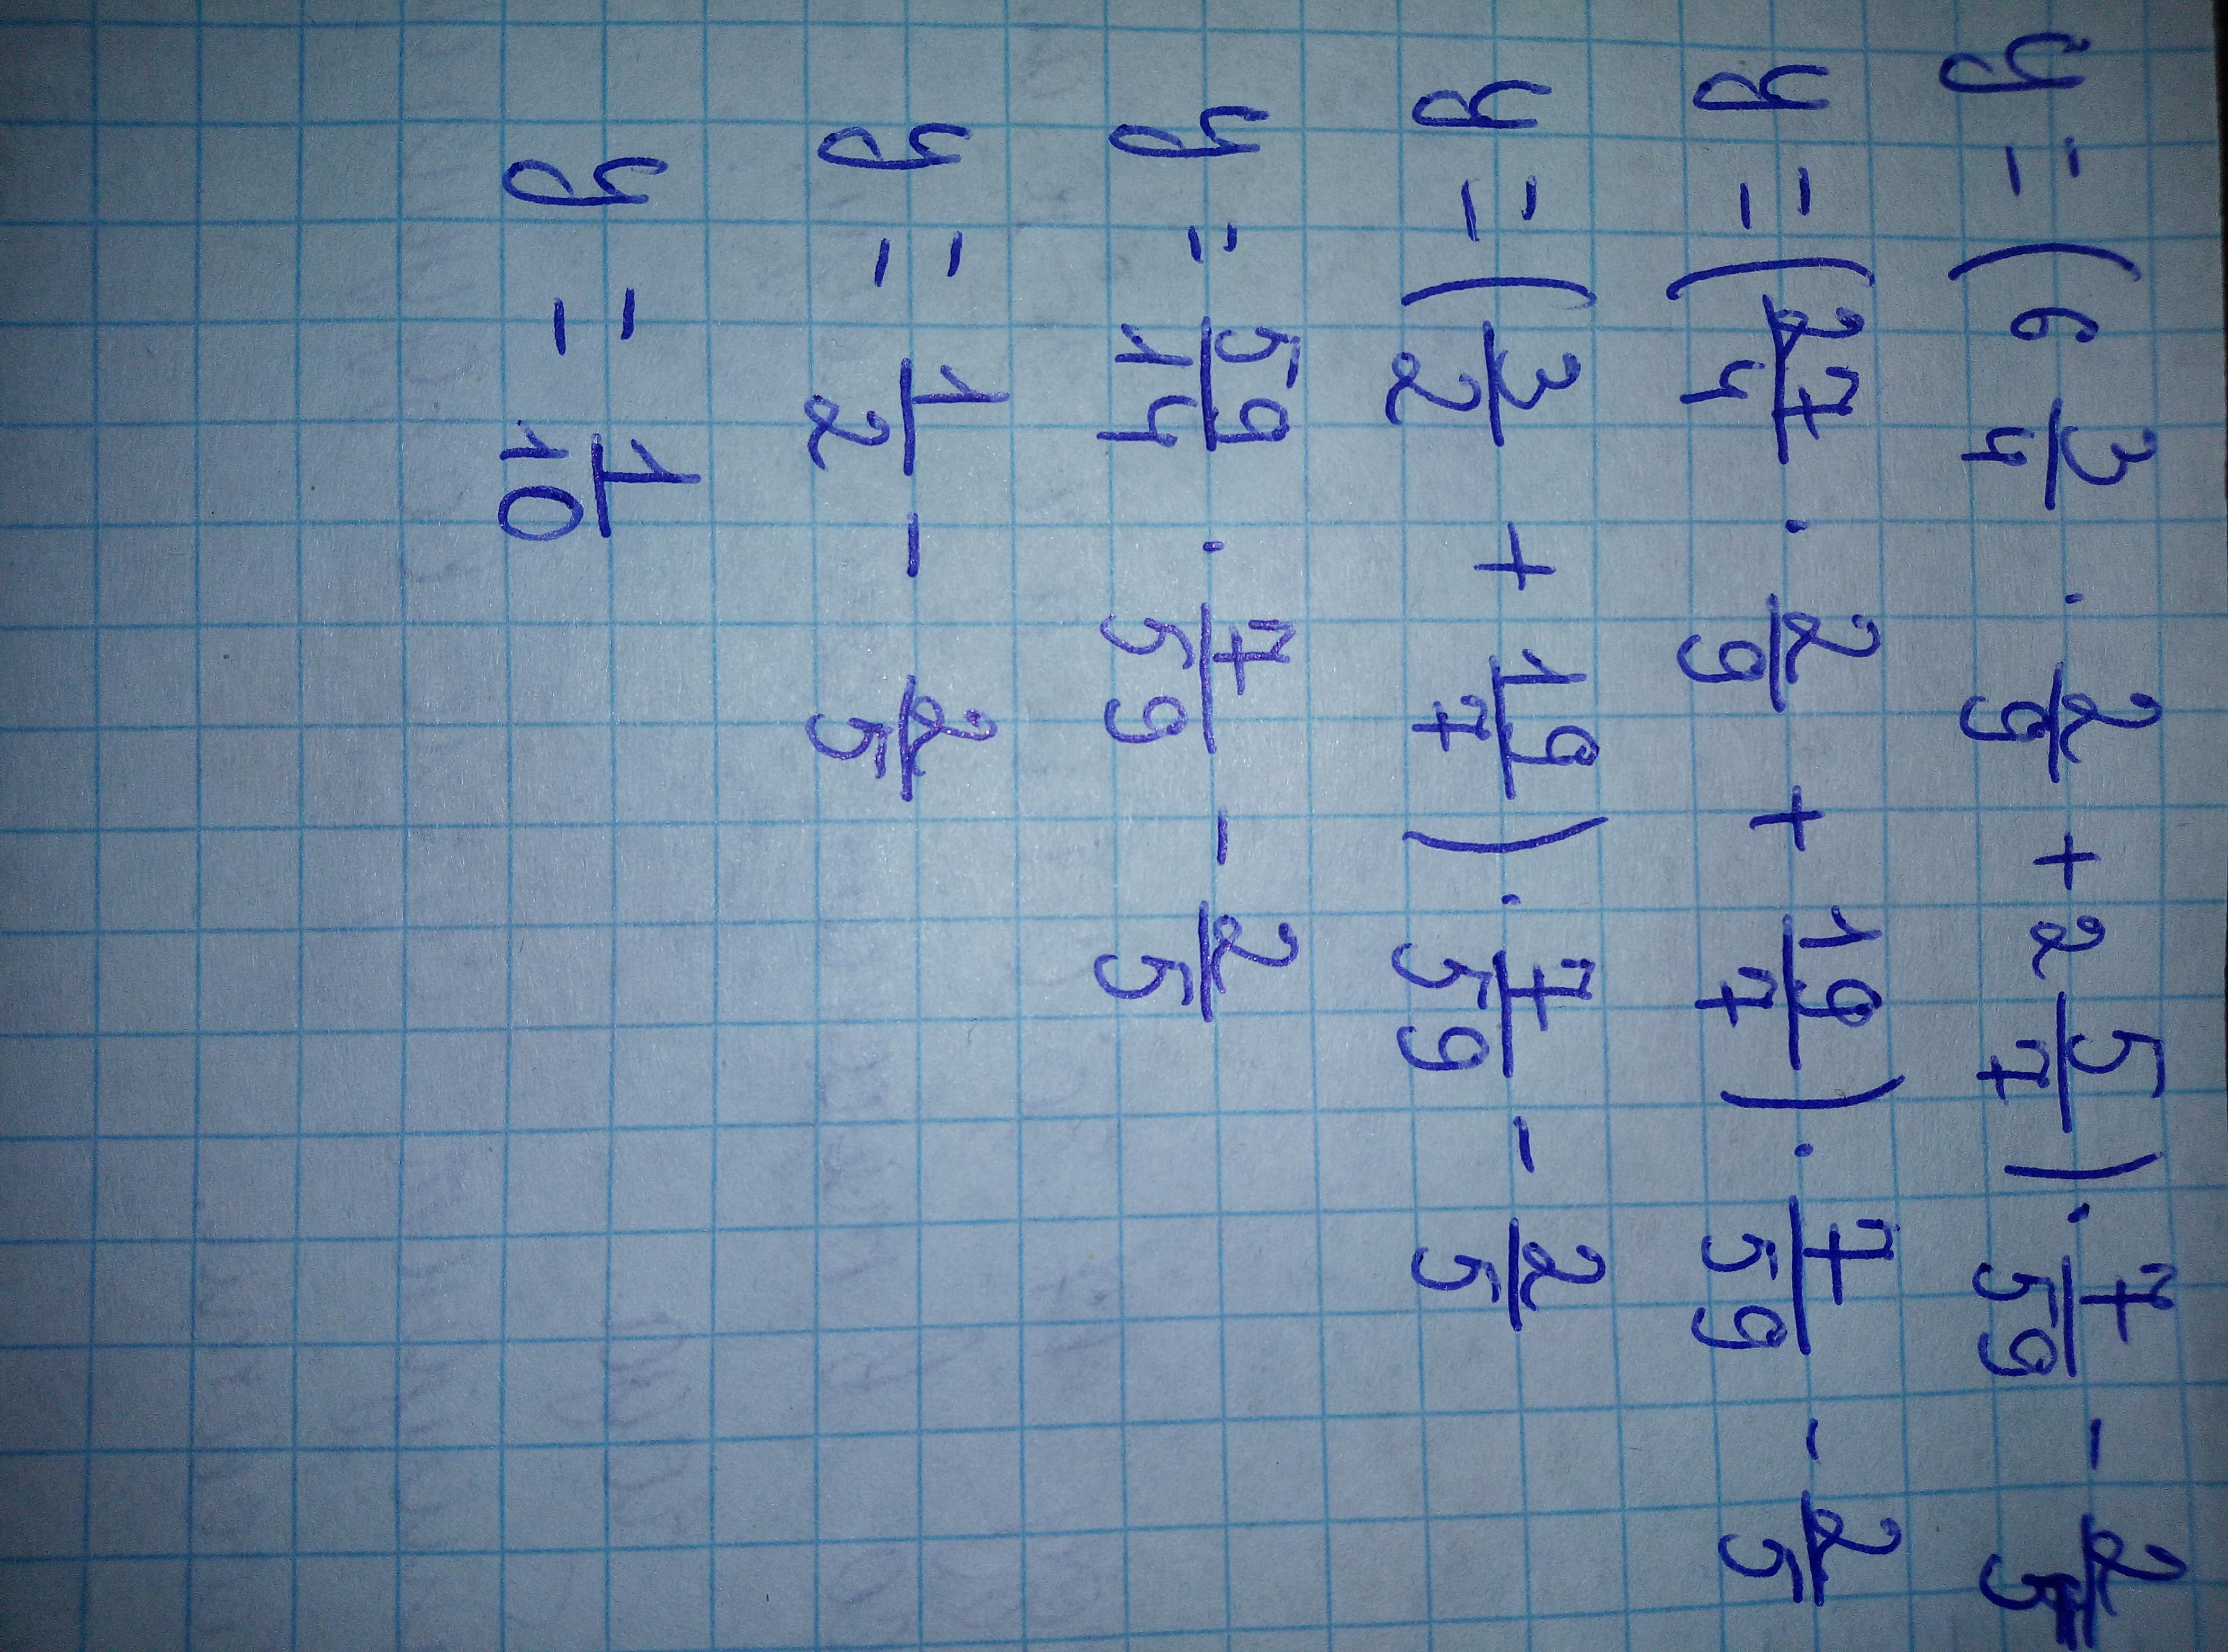 y = (6 3/4 · 2/9 + 2 5/7) · 7/59 - 2/5
y = (27/4 · 2/9 + 19/7) · 7/59 - 2/5
y = (3/2 + 19/7) · 7/59 - 2/5
y = 59/14 · 7/59 - 2/5
y = 1/2 - 2/5
y = 1/10